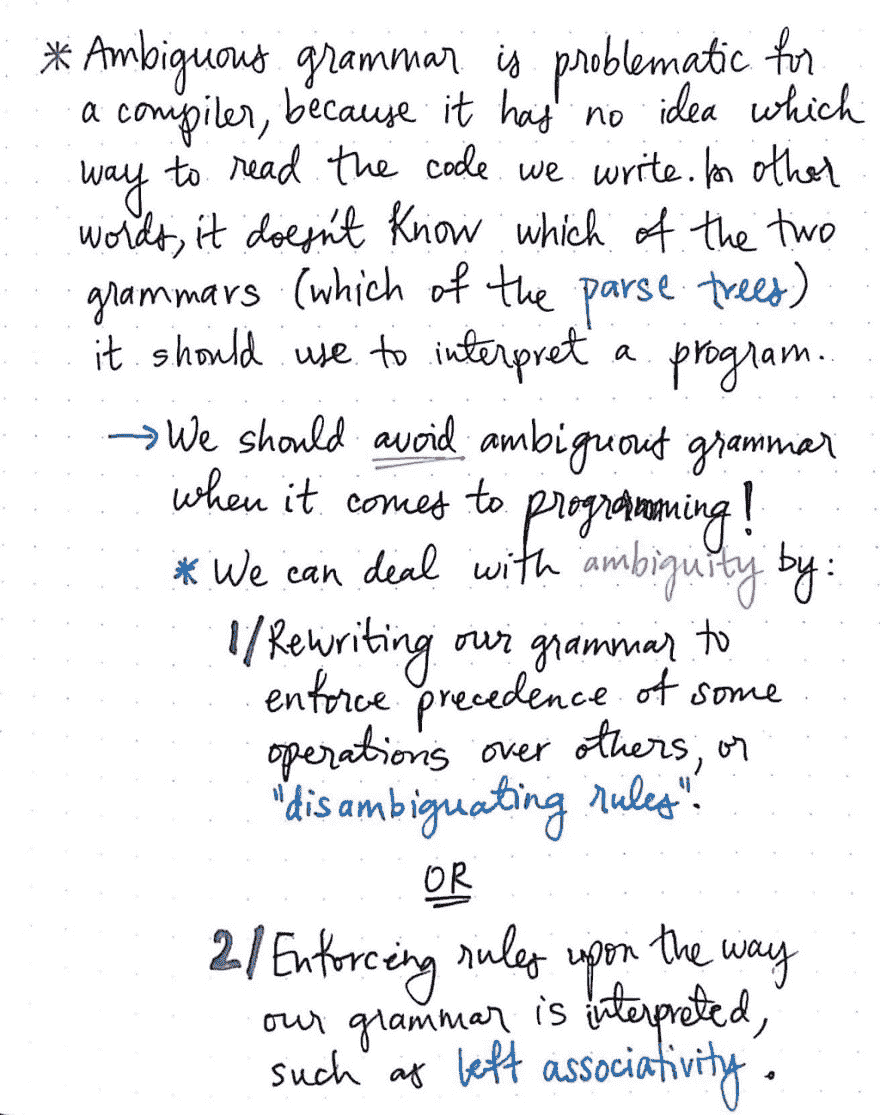 * Ambiguous grammar is problematic for
a compiler, because it has no idea which
way to read the code we write. In other
words, it doesn't know which of the two
grammars (which of the parse trees)
it should use to interpret a program.
→ We should avoid ambiguous grammar
when it comes to programming!
* We can deal with ambiguity by:
1/ Rewriting our grammar to
enforce precedence of some
operations over others, or
"disambiguating rules".
OR
2/ Enforcing rules upon the way
our grammar is interpreted,
such as left associativity.